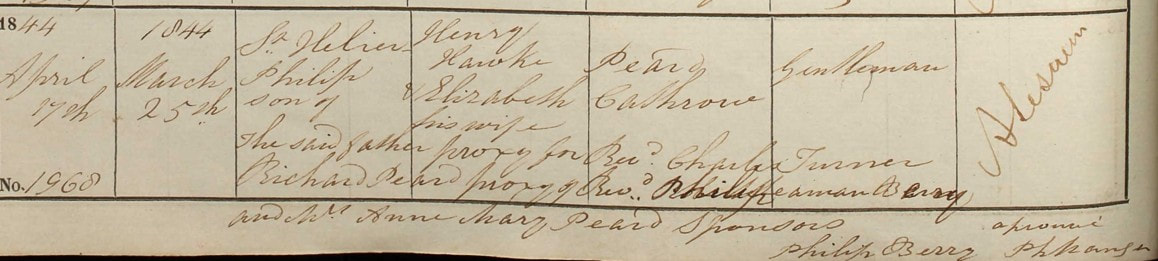 1844 1844 St. Helier Henry
April March Philip Hawke Peard Gentleman
17th 25th son of & Elizabeth Cathrow
his wife
The said father proxy for Revd. Charles Turner
No. 1968 Richard Peard proxy of Revd. Philip Seaman Berry
and Mrs Anne Mary Peard Sponsors
Philip Berry